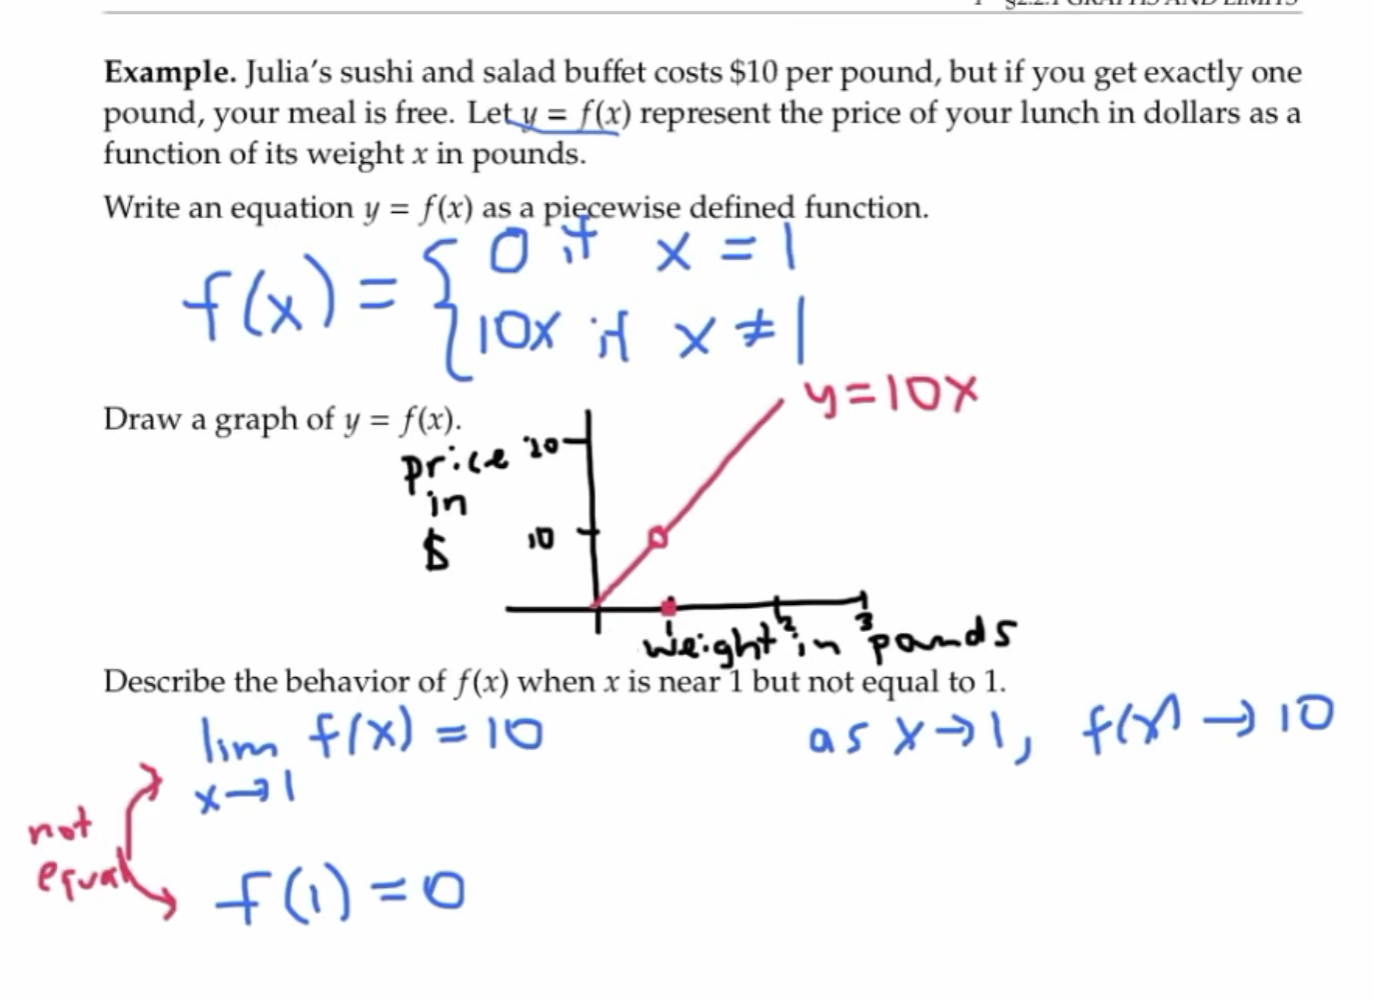 Example. Julia's sushi and salad buffet costs $10 per pound, but if you get exactly one
pound, your meal is free. Let y = f(x) represent the price of your lunch in dollars as a
function of its weight x in pounds.
Write an equation y = f(x) as a piecewise defined function.
f(x) = { 0 if x = 1
10x if x ≠ 1
y=10x
Draw a graph of y = f(x).
price
in
$
20
10
1 2 3
weight in pounds
Describe the behavior of f(x) when x is near 1 but not equal to 1.
lim f(x) = 10
x→1
as x→1, f(x) → 10
not
equal
f(1) = 0